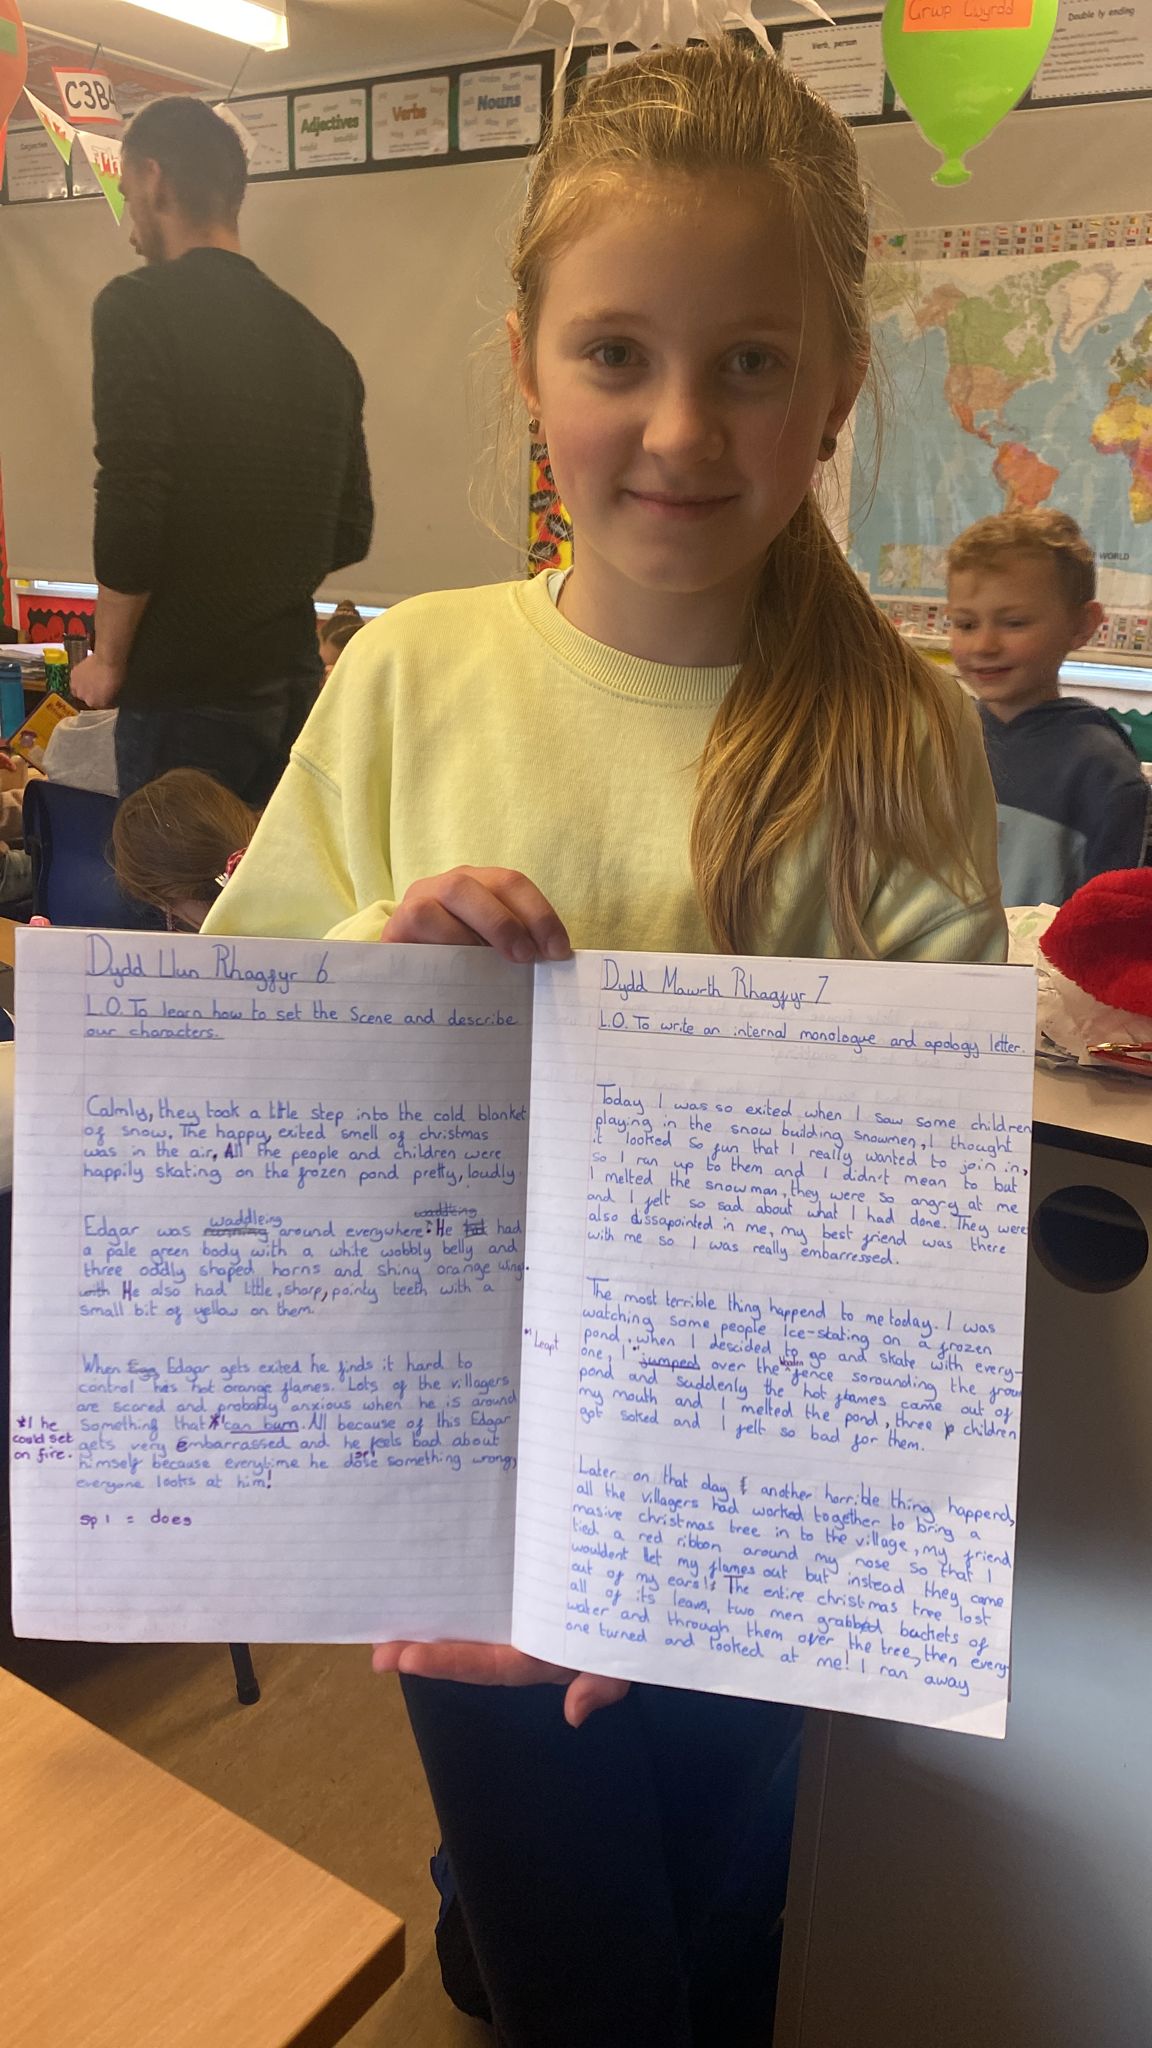 Grwp Gwyrdd
Double ly ending
Verb, person
C3B4
Adjectives
Verbs
Nouns
WORLD
Dydd Llun Rhagfyr 6
L.O. To learn how to set the Scene and describe
our characters.
Calmly, they took a little step into the cold blanket
of snow. The happy, exited smell of christmas
was in the air, All the people and children were
happily skating on the frozen pond pretty, loudly
waddleing waddling
Edgar was running around everywhere. He had
a pale green body with a white wobbly belly and
three oddly shaped horns and shiny orange wings.
with He also had little, sharp, pointy teeth with a
small bit of yellow on them.
When Egg Edgar gets exited he finds it hard to
control his hot orange flames. Lots of the villagers
are scared and probably anxious when he is around
something that * can burn. All because of this Edgar
gets very Embarrassed and he feels bad about
himself because everytime he dose something wrong,
everyone looks at him!
*1 he
could set
on fire.
sp 1 = does
Dydd Mawrth Rhagfyr 7
L.O. To write an internal monologue and apology letter.
Today I was so exited when I saw some children
playing in the snow building snowmen, I thought
it looked so fun that I really wanted to join in,
so I ran up to them and I didn't mean to but
I melted the snowman, they were so angry at me
and I felt so sad about what I had done. They were
also dissapointed in me, my best friend was there
with me so I was really embarressed.
The most terrible thing happend to me today. I was
watching some people Ice-skating on a frozen
pond, when I descided to go and skate with every-
one, I *1 jumped over the wooden fence sorounding the frozen
pond and suddenly the hot flames came out of
my mouth and I melted the pond, three p children
got soked and I felt so bad for them.
*1 Leapt
Later on that day & another horrible thing happend,
all the villagers had worked together to bring a
masive christmas tree in to the village, my friend
tied a red ribbon around my nose so that I
wouldent let my flames out but instead they came
out of my ears!! The entire christmas tree lost
all of its leavs, two men grabbed buckets of
water and through them over the tree, then every-
one turned and looked at me! I ran away